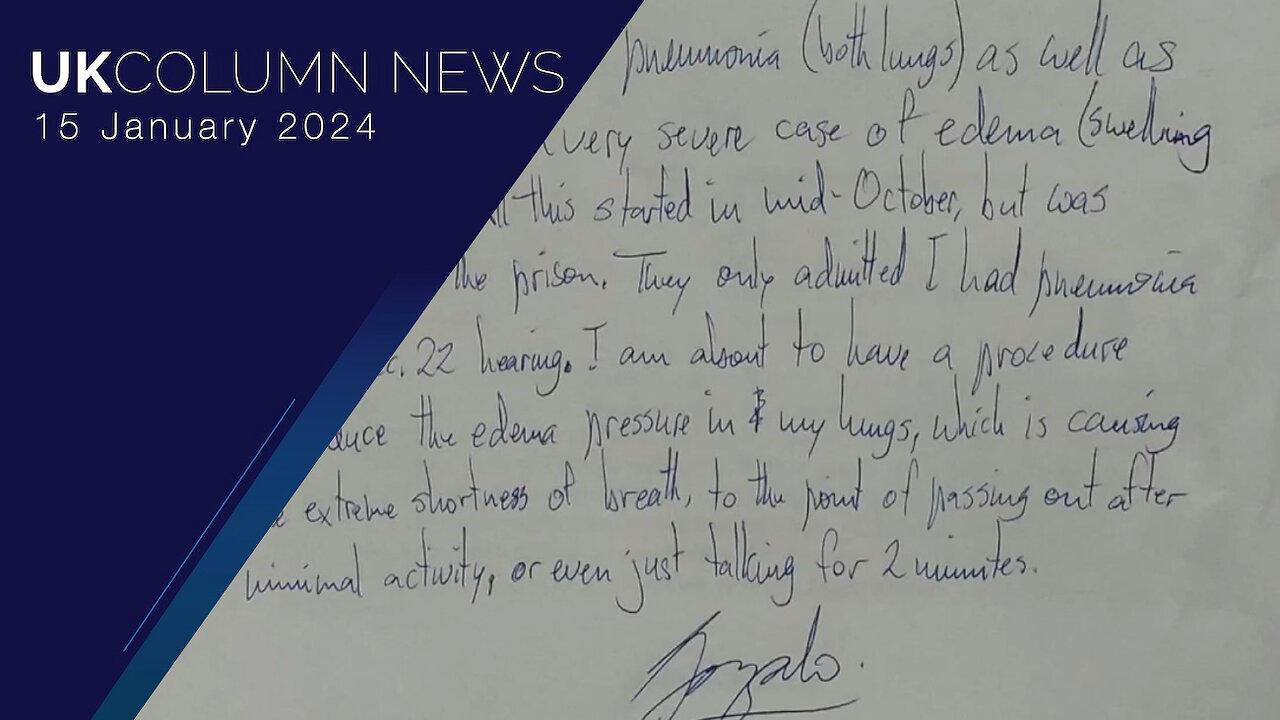 UKCOLUMN NEWS
15 January 2024
pneumonia (both lungs) as well as
very severe case of edema (swelling
this started in mid-October, but was
the prison. They only admitted I had pneumonia
22 hearing. I am about to have a procedure
the edema pressure in my lungs, which is causing
extreme shortness of breath, to the point of passing out after
minimal activity, or even just talking for 2 minutes.
Gonzalo.